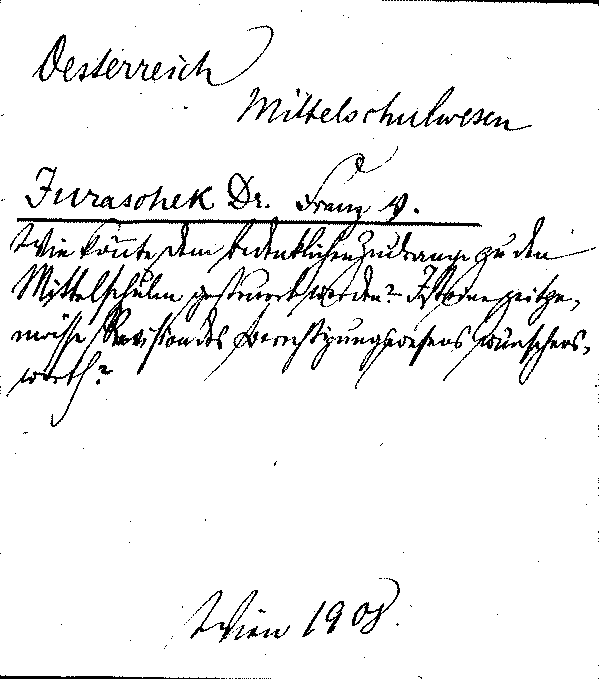 Oesterreich
Mittelschulwesen
Juraschek Dr. Franz v.
Wie könnte dem bedenklichen Zudrange zu den
Mittelschulen gesteuert werden? Ist eine zeitge-
mässe Revision des Berechtigungswesens wünschens-
werth?
Wien 1908.